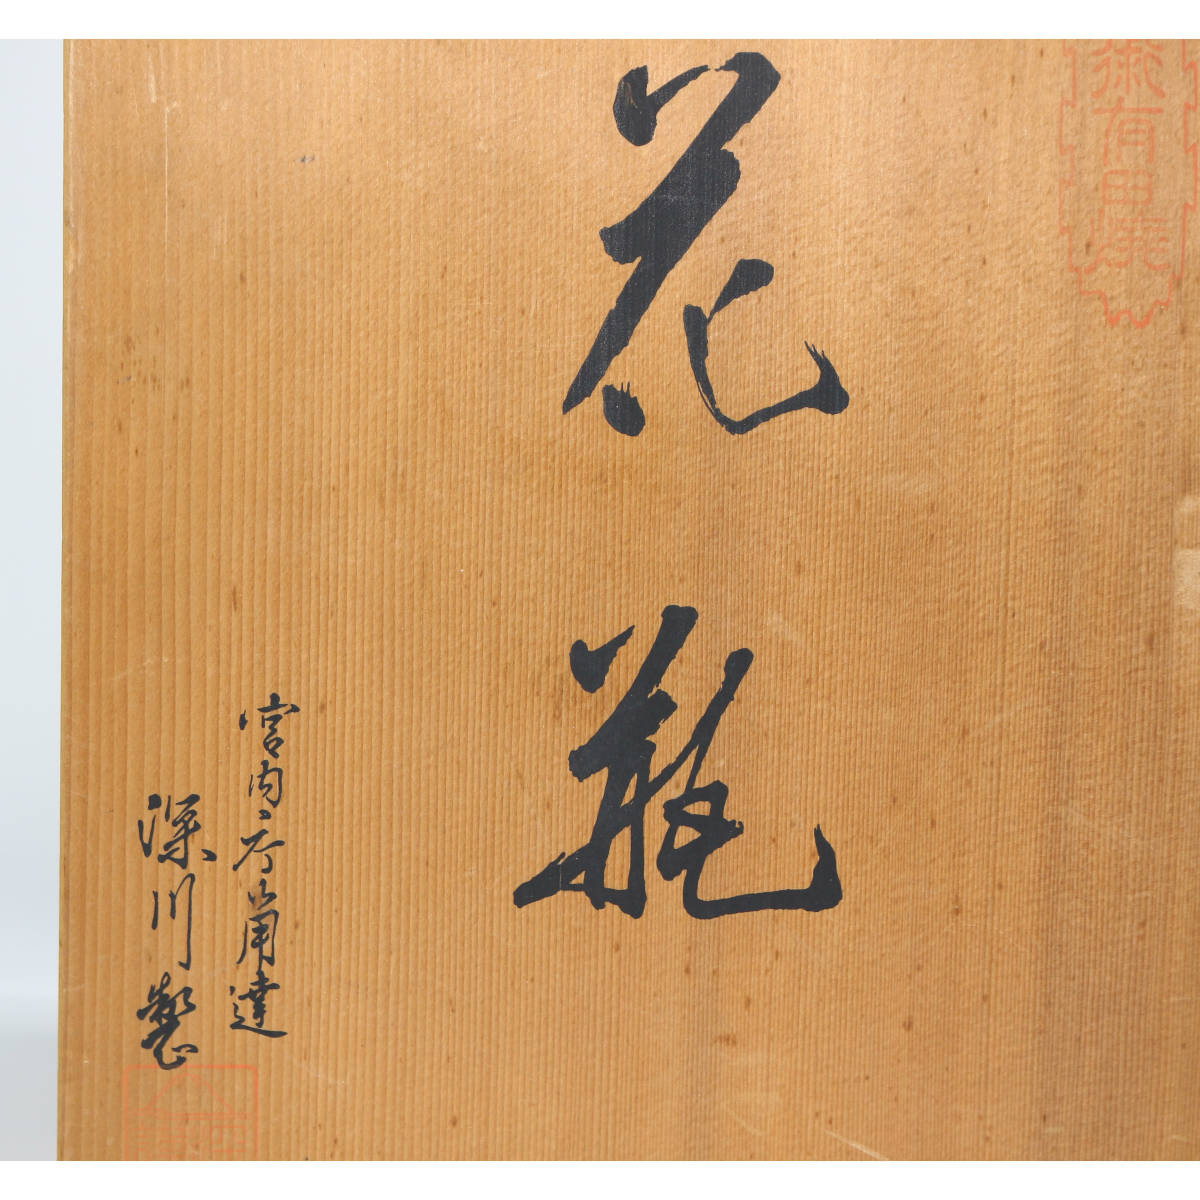 術有田窯
花瓶
宮内庁御用達
深川製